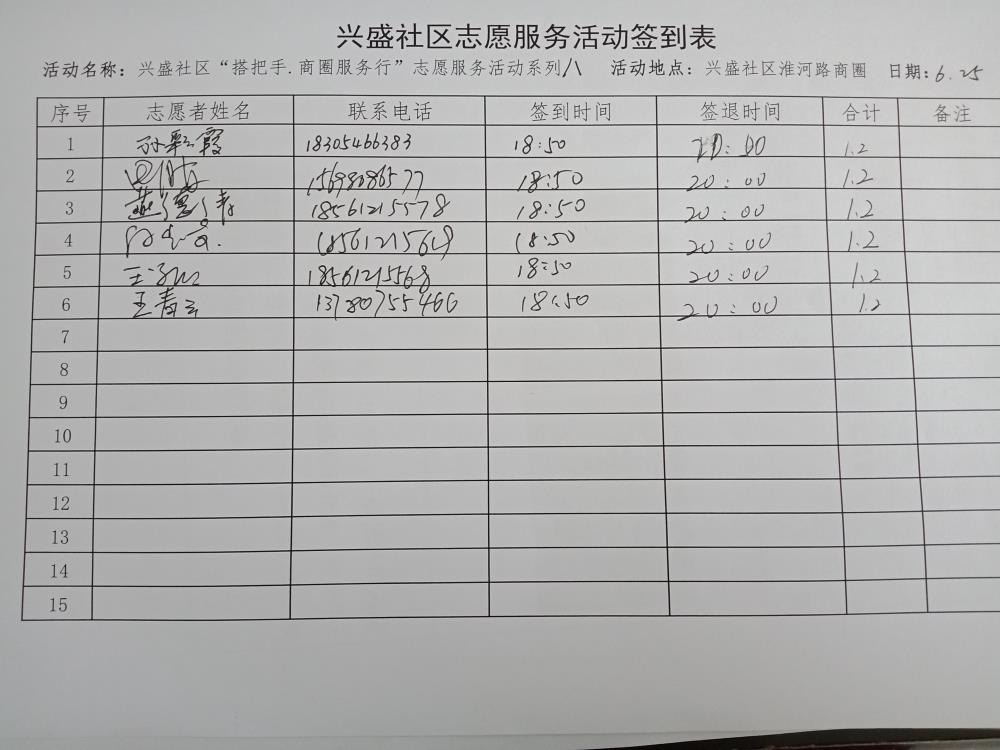 兴盛社区志愿服务活动签到表
活动名称：兴盛社区“搭把手.商圈服务行”志愿服务活动系列/\ 活动地点：兴盛社区淮河路商圈 日期：6.25
序号 志愿者姓名 联系电话 签到时间 签退时间 合计 备注
1 孙彩霞 18305466383 18:50 20:00 1.2
2 15698086577 18:50 20:00 1.2
3 18561215578 18:50 20:00 1.2
4 18:50 20:00 1.2
5 18561215568 18:50 20:00 1.2
6 王青云 13780755466 18:50 20:00 1.2
7
8
9
10
11
12
13
14
15